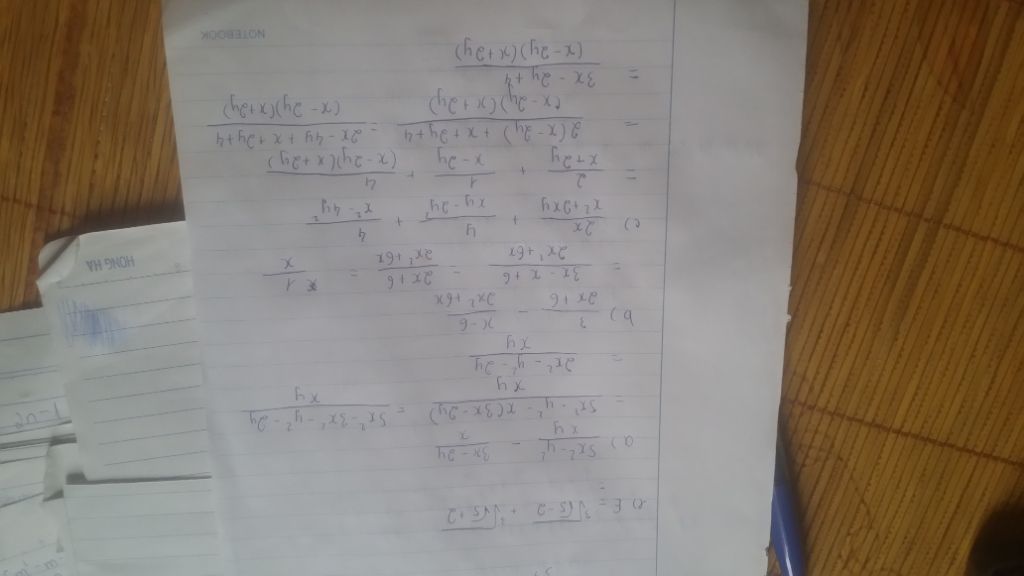 a) E = ∛(√5 - 2) + ∛(√5 + 2)
=
a) (5x² - y²)/(xy) - (3x - 2y)/x
= (5x² - y² - x(3x - 2y))/(xy) = (5x² - 3x² - y² - 2y)/(xy)
= (2x² - y² - 2y)/(xy)
b) 3/(2x + 6) - (x - 6)/(2x² + 6x)
= (3x - x + 6)/(2x² + 6x) - (2x + 6)/(2x² + 6x) = 1/x
c) 2x/(x² + 2xy) + y/(xy - 2y²) + 4/(x² - 4y²)
= 2/(x + 2y) + 1/(x - 2y) + 4/((x - 2y)(x + 2y))
= (2(x - 2y) + x + 2y + 4)/((x - 2y)(x + 2y)) = (2x - 4y + x + 2y + 4)/((x - 2y)(x + 2y))
= (3x - 2y + 4)/((x - 2y)(x + 2y))
NOTEBOOK
HONG HA